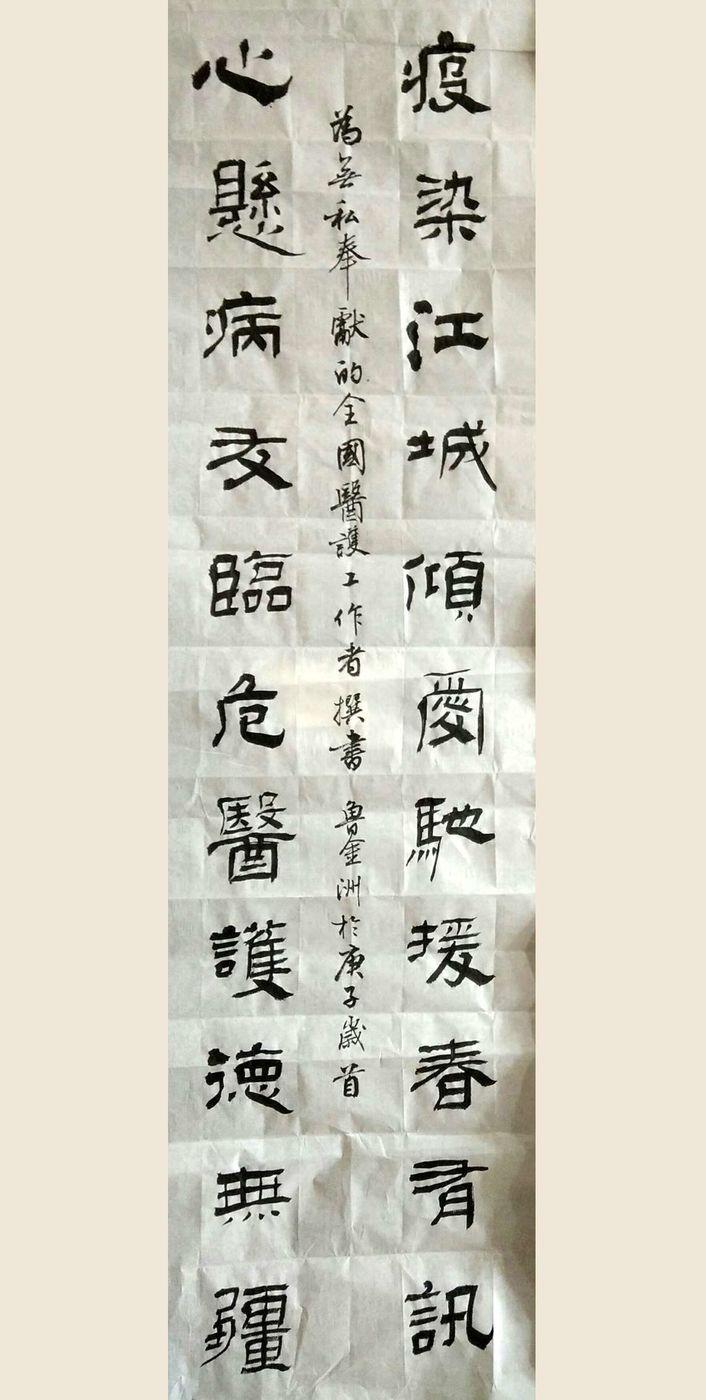 疫染江城傾愛馳援春有訊
為無私奉獻的全國醫護工作者撰書 魯金洲於庚子歲首
心懸病友臨危醫護德無疆